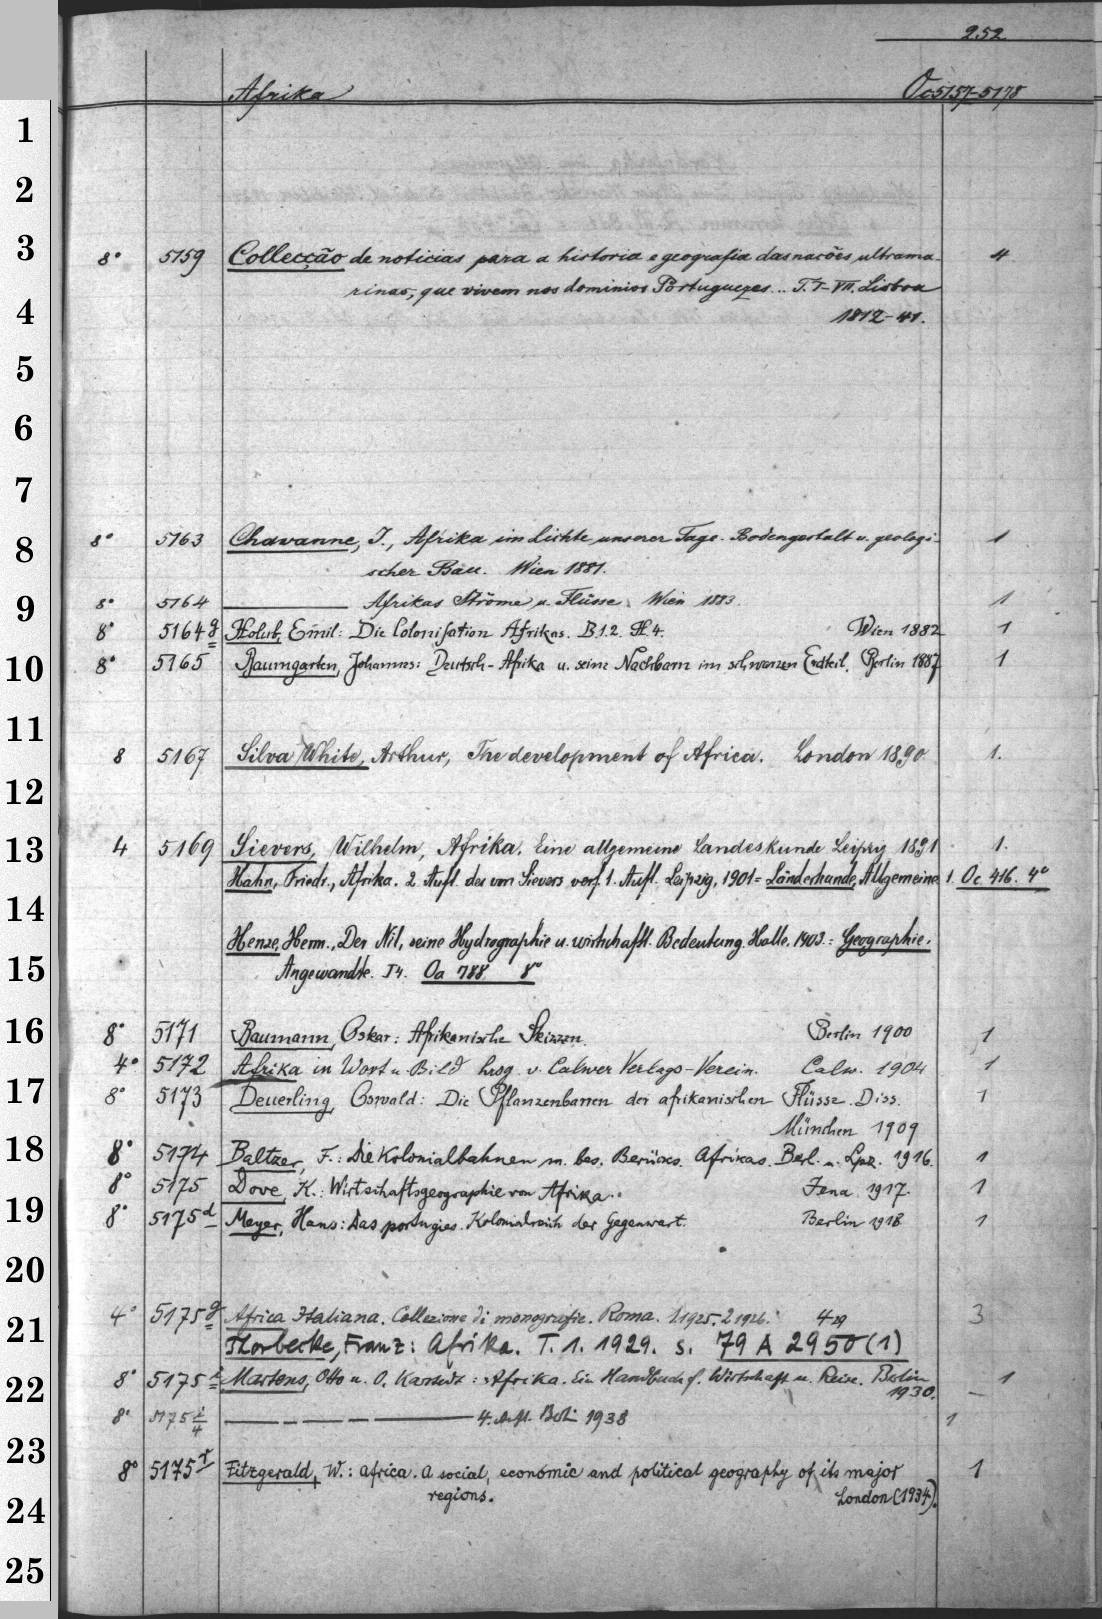 252
Afrika Oc5157-5178
1
2
3
4
5
6
7
8
9
10
11
12
13
14
15
16
17
18
19
20
21
22
23
24
25
8° 5159 Collecção de noticias para a historia e geografia das nacões ultrama- 4
rinas, que vivem nos dominios Portuguezes... T. I-VII. Lisboa
1812-41.
8° 5163 Chavanne, J., Afrika im Lichte unserer Tage. Bodengestalt u. geologi- 1
scher Bau. Wien 1881.
8° 5164 ——— Afrikas Ströme u. Flüsse. Wien 1883. 1
8° 5164g Holub, Emil: Die Colonisation Afrikas. B 1.2. H 4. Wien 1882 1
8° 5165 Baumgarten, Johannes: Deutsch-Afrika u. seine Nachbarn im schwarzen Erdteil. Berlin 1887 1
8 5167 Silva White, Arthur, The development of Africa. London 1890. 1.
4 5169 Sievers, Wilhelm, Afrika. Eine allgemeine Landeskunde Leipzig 1891 1.
Hahn, Friedr., Afrika. 2. Aufl. der von Sievers verf. 1. Aufl. Leipzig, 1901 = Länderkunde, Allgemeine 1. Oc. 416. 4°
Henze, Herm., Der Nil, seine Hydrographie u. wirtschaftl. Bedeutung. Halle. 1903. = Geographie,
Angewandte. I4. Oa 788 8°
8° 5171 Baumann, Oskar: Afrikanische Skizzen. Berlin 1900 1
4° 5172 Afrika in Wort u. Bild hrsg. v. Calwer Verlags-Verein. Calw. 1904 1
8° 5173 Deuerling, Oswald: Die Pflanzenbarren der afrikanischen Flüsse. Diss. 1
München 1909
8° 5174 Baltzer, F.: Die Kolonialbahnen m. bes. Berücks. Afrikas. Berl. u. Lpz. 1916. 1
8° 5175 Dove, K.: Wirtschaftsgeographie von Afrika.. Jena 1917. 1
8° 5175d Meyer, Hans: Das portugies. Kolonialreich der Gegenwart. Berlin 1918 1
4° 5175g Africa Italiana. Collezione di monografie. Roma. 1 1925. 2 1926. 4 29 3
Thorbecke, Franz: Afrika. T. 1. 1929. s. 79 A 2950(1)
8° 5175i Martens, Otto u. O. Karstedt: Afrika. Ein Handbuch f. Wirtschaft u. Reise. Berlin 1
1930. —
8° 5175 i/4 ——— 4. Aufl. Berl. 1938 1
8° 5175r Fitzgerald, W.: Africa. A social, economic and political geography of its major 1
regions. London (1934).